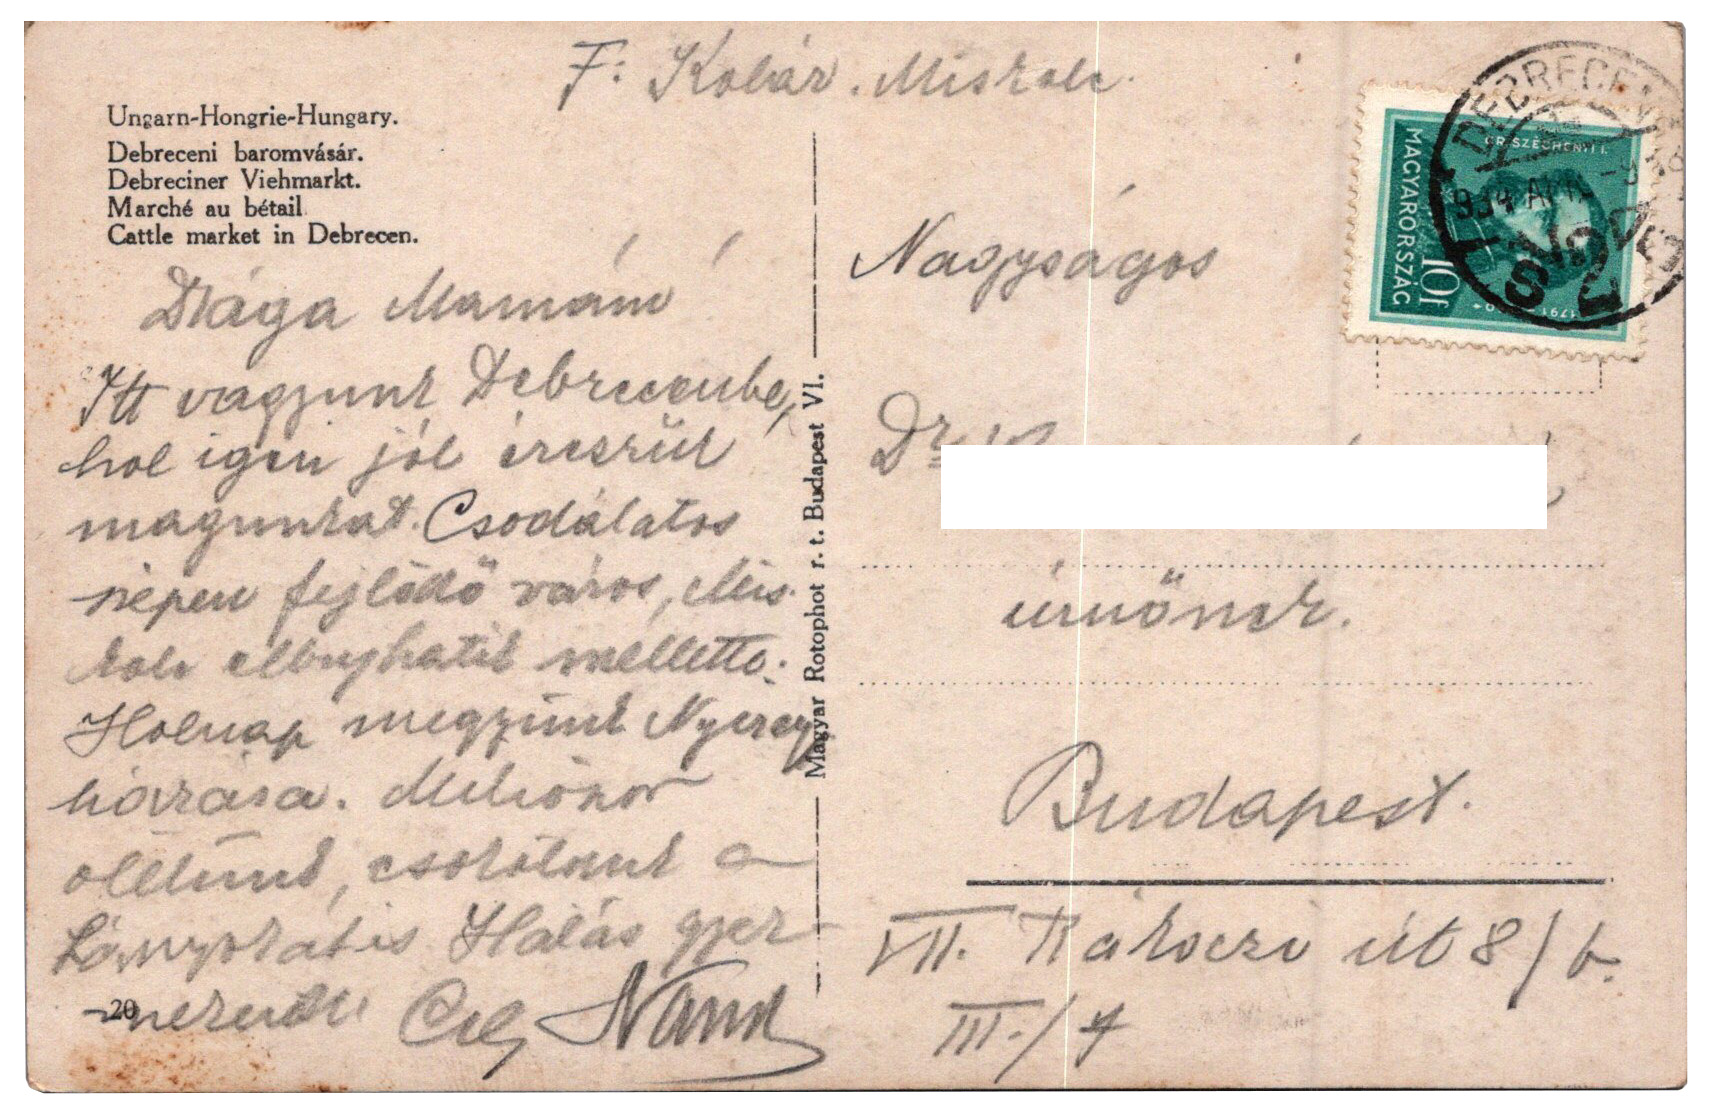 F: Kobár. Miskolc.
Ungarn-Hongrie-Hungary.
Debreceni baromvásár.
Debreciner Viehmarkt.
Marché au bétail
Cattle market in Debrecen.
Drága Mamám
Itt vagyunk Debrecenbe,
hol igen jól érezzük
magunkat. Csodálatos
szépen fejlődő város, Mis-
kolc elbujhatik mellette.
Holnap megyünk Nyiregy
házára. Milliószor
ölelünk, csókolunk a
Lányokat is Hálás gyer-
mekeid:
20
Magyar Rotophot r. t. Budapest VI.
GR. SZÉCHENYI I.
MAGYARORSZÁG
10f
1791
DEBRECEN
934 APR -9
Nagyságos
Dr
úrnőnek.
Budapest.
VII. Rákoczi út 8/b.
III./7